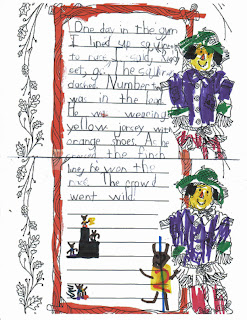 One day in the gym
I lined up squirrels
to race. I said, Ready
set, go. The squirrel
dashed. Number
was in the lead.
He was wearing
yellow jersey with
orange shoes. As he
crossed the finish
line he won the
race. The crowd
went wild.